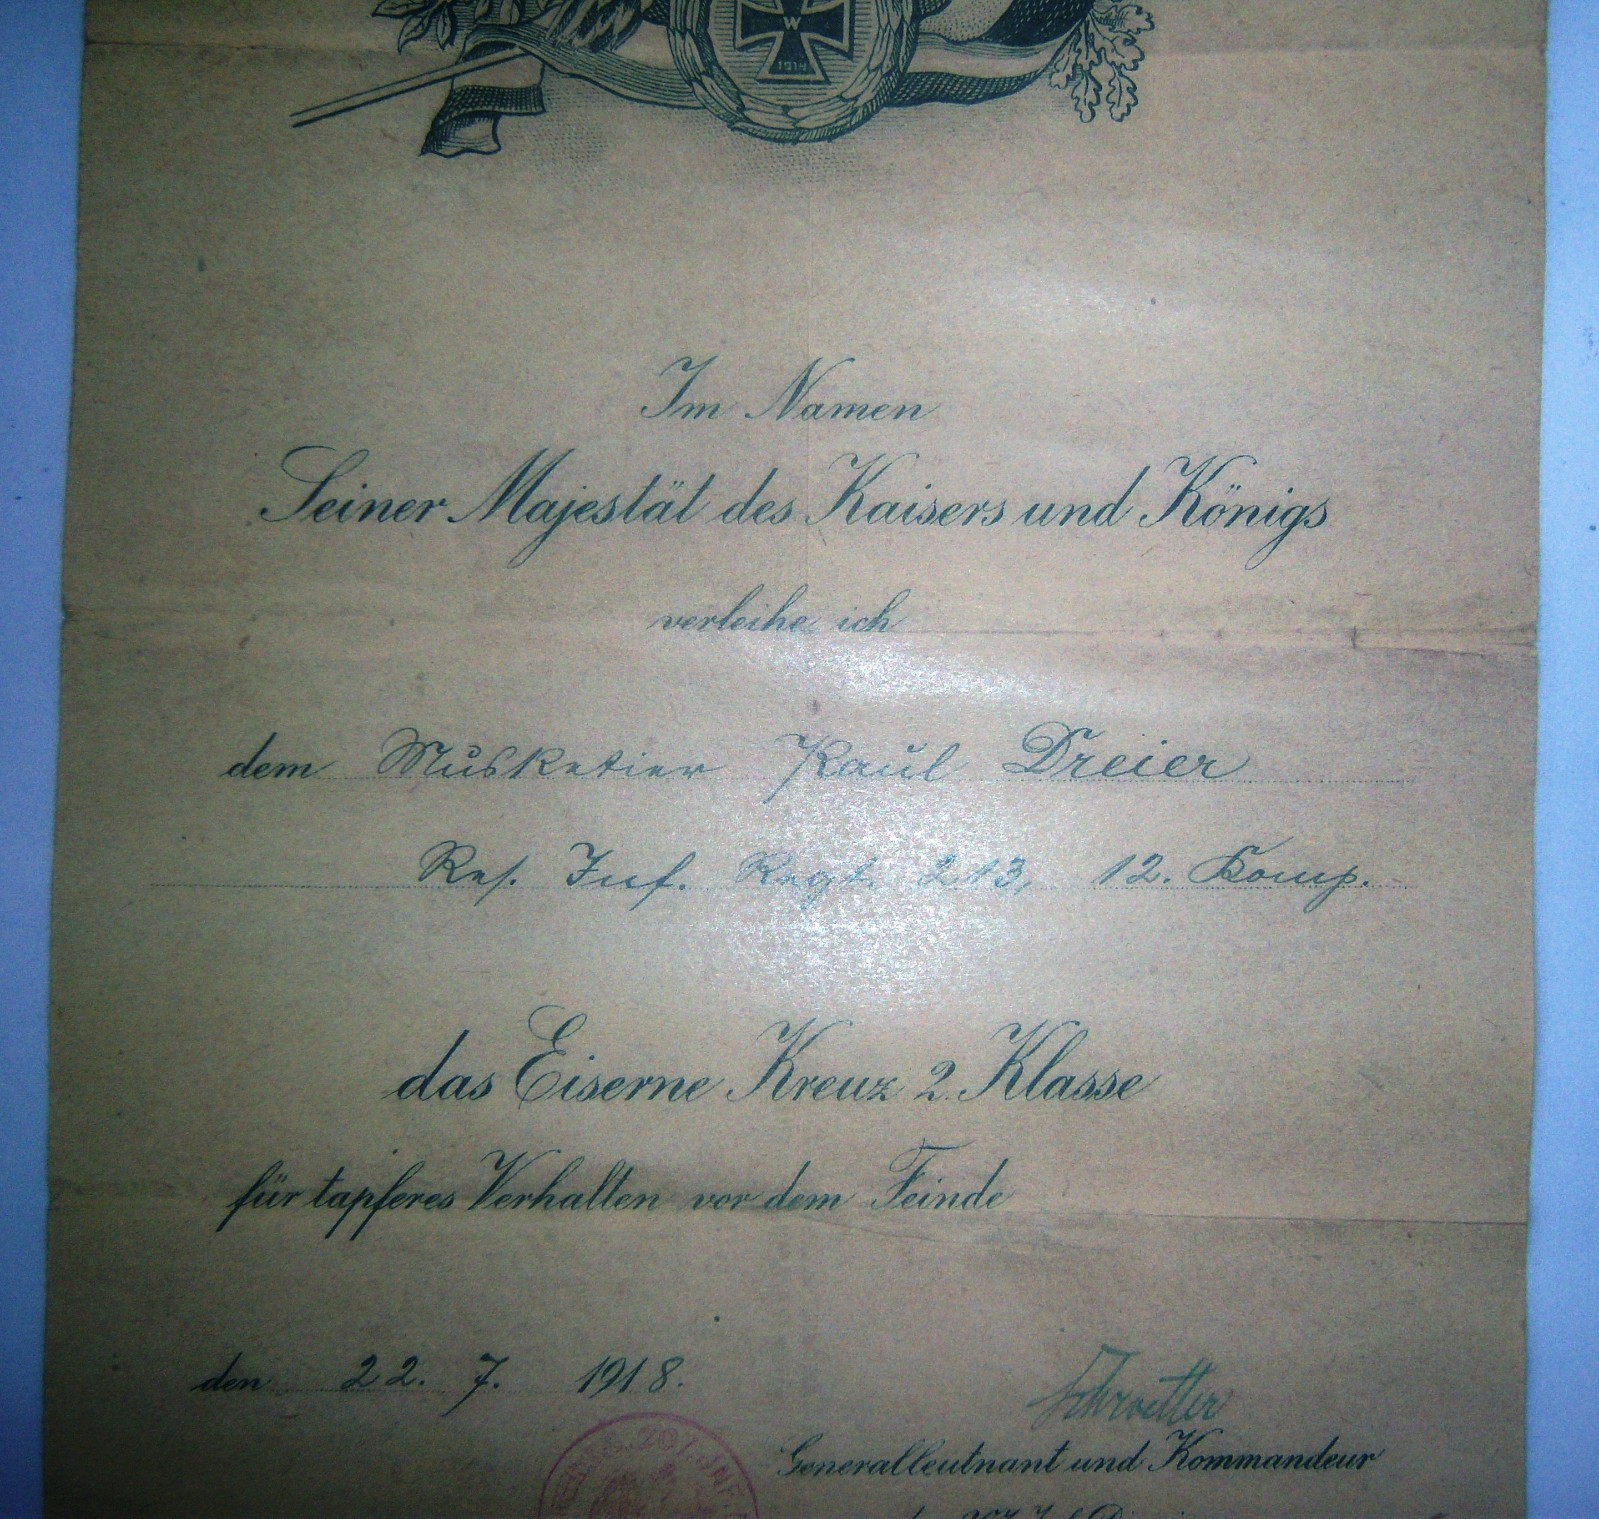 W
1914
Im Namen
Seiner Majestät des Kaisers und Königs
verleihe ich
dem Musketier Paul Dreier
Res. Inf. Regt. 213, 12. Komp.
das Eiserne Kreuz 2. Klasse
für tapferes Verhalten vor dem Feinde
den 22. 7. 1918.
Schroetter
Generalleutnant und Kommandeur